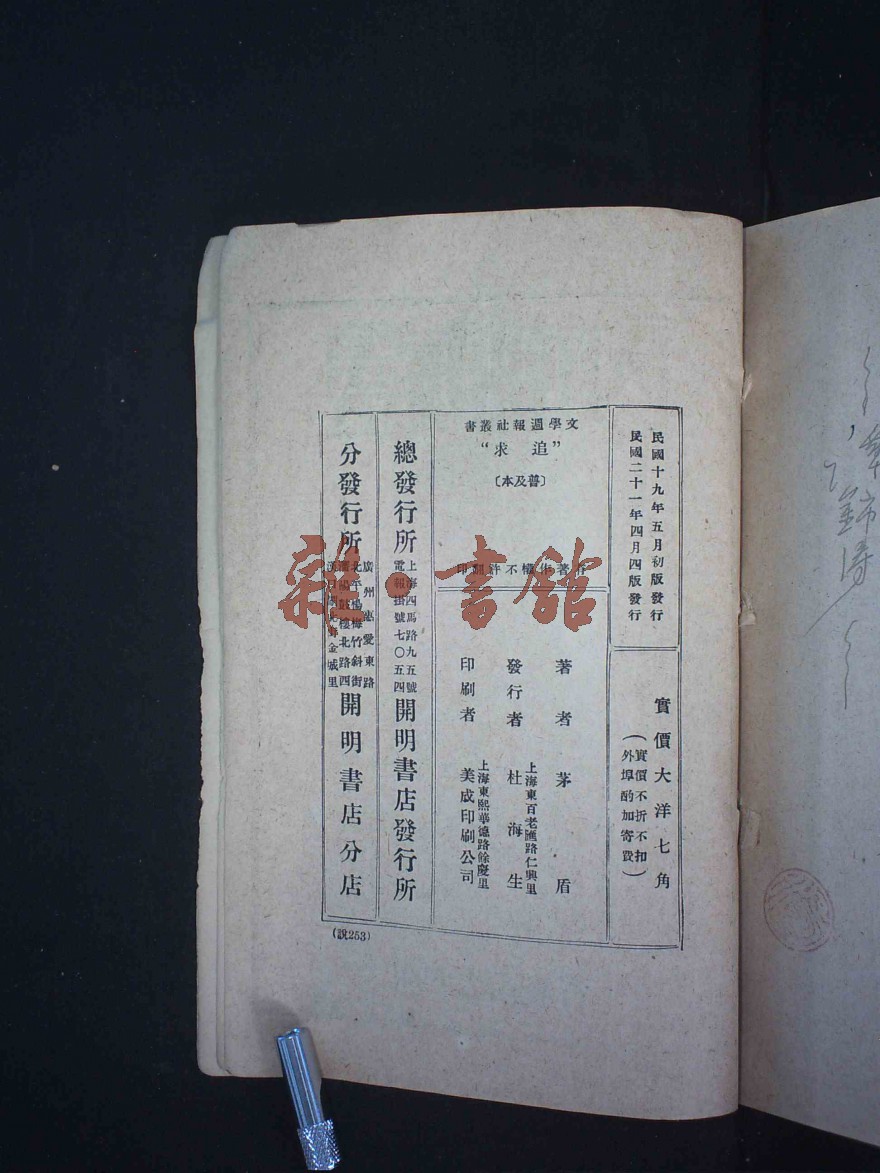 民國十九年五月初版發行
民國二十一年四月四版發行
實價大洋七角
（實價不折不扣
外埠酌加寄費）
文學週報社叢書
“追求”
〔普及本〕
有著作權不許翻印
著者 茅盾
發行者 杜海生
上海東百老匯路仁興里
印刷者 美成印刷公司
上海東熙華德路餘慶里
總發行所
上海四馬路九五號
電報掛號七〇五四
開明書店發行所
分發行所
廣州惠愛東路
北平楊梅竹斜街
瀋陽鼓樓北路四
金城里
開明書店分店
(說253)
雜·書館